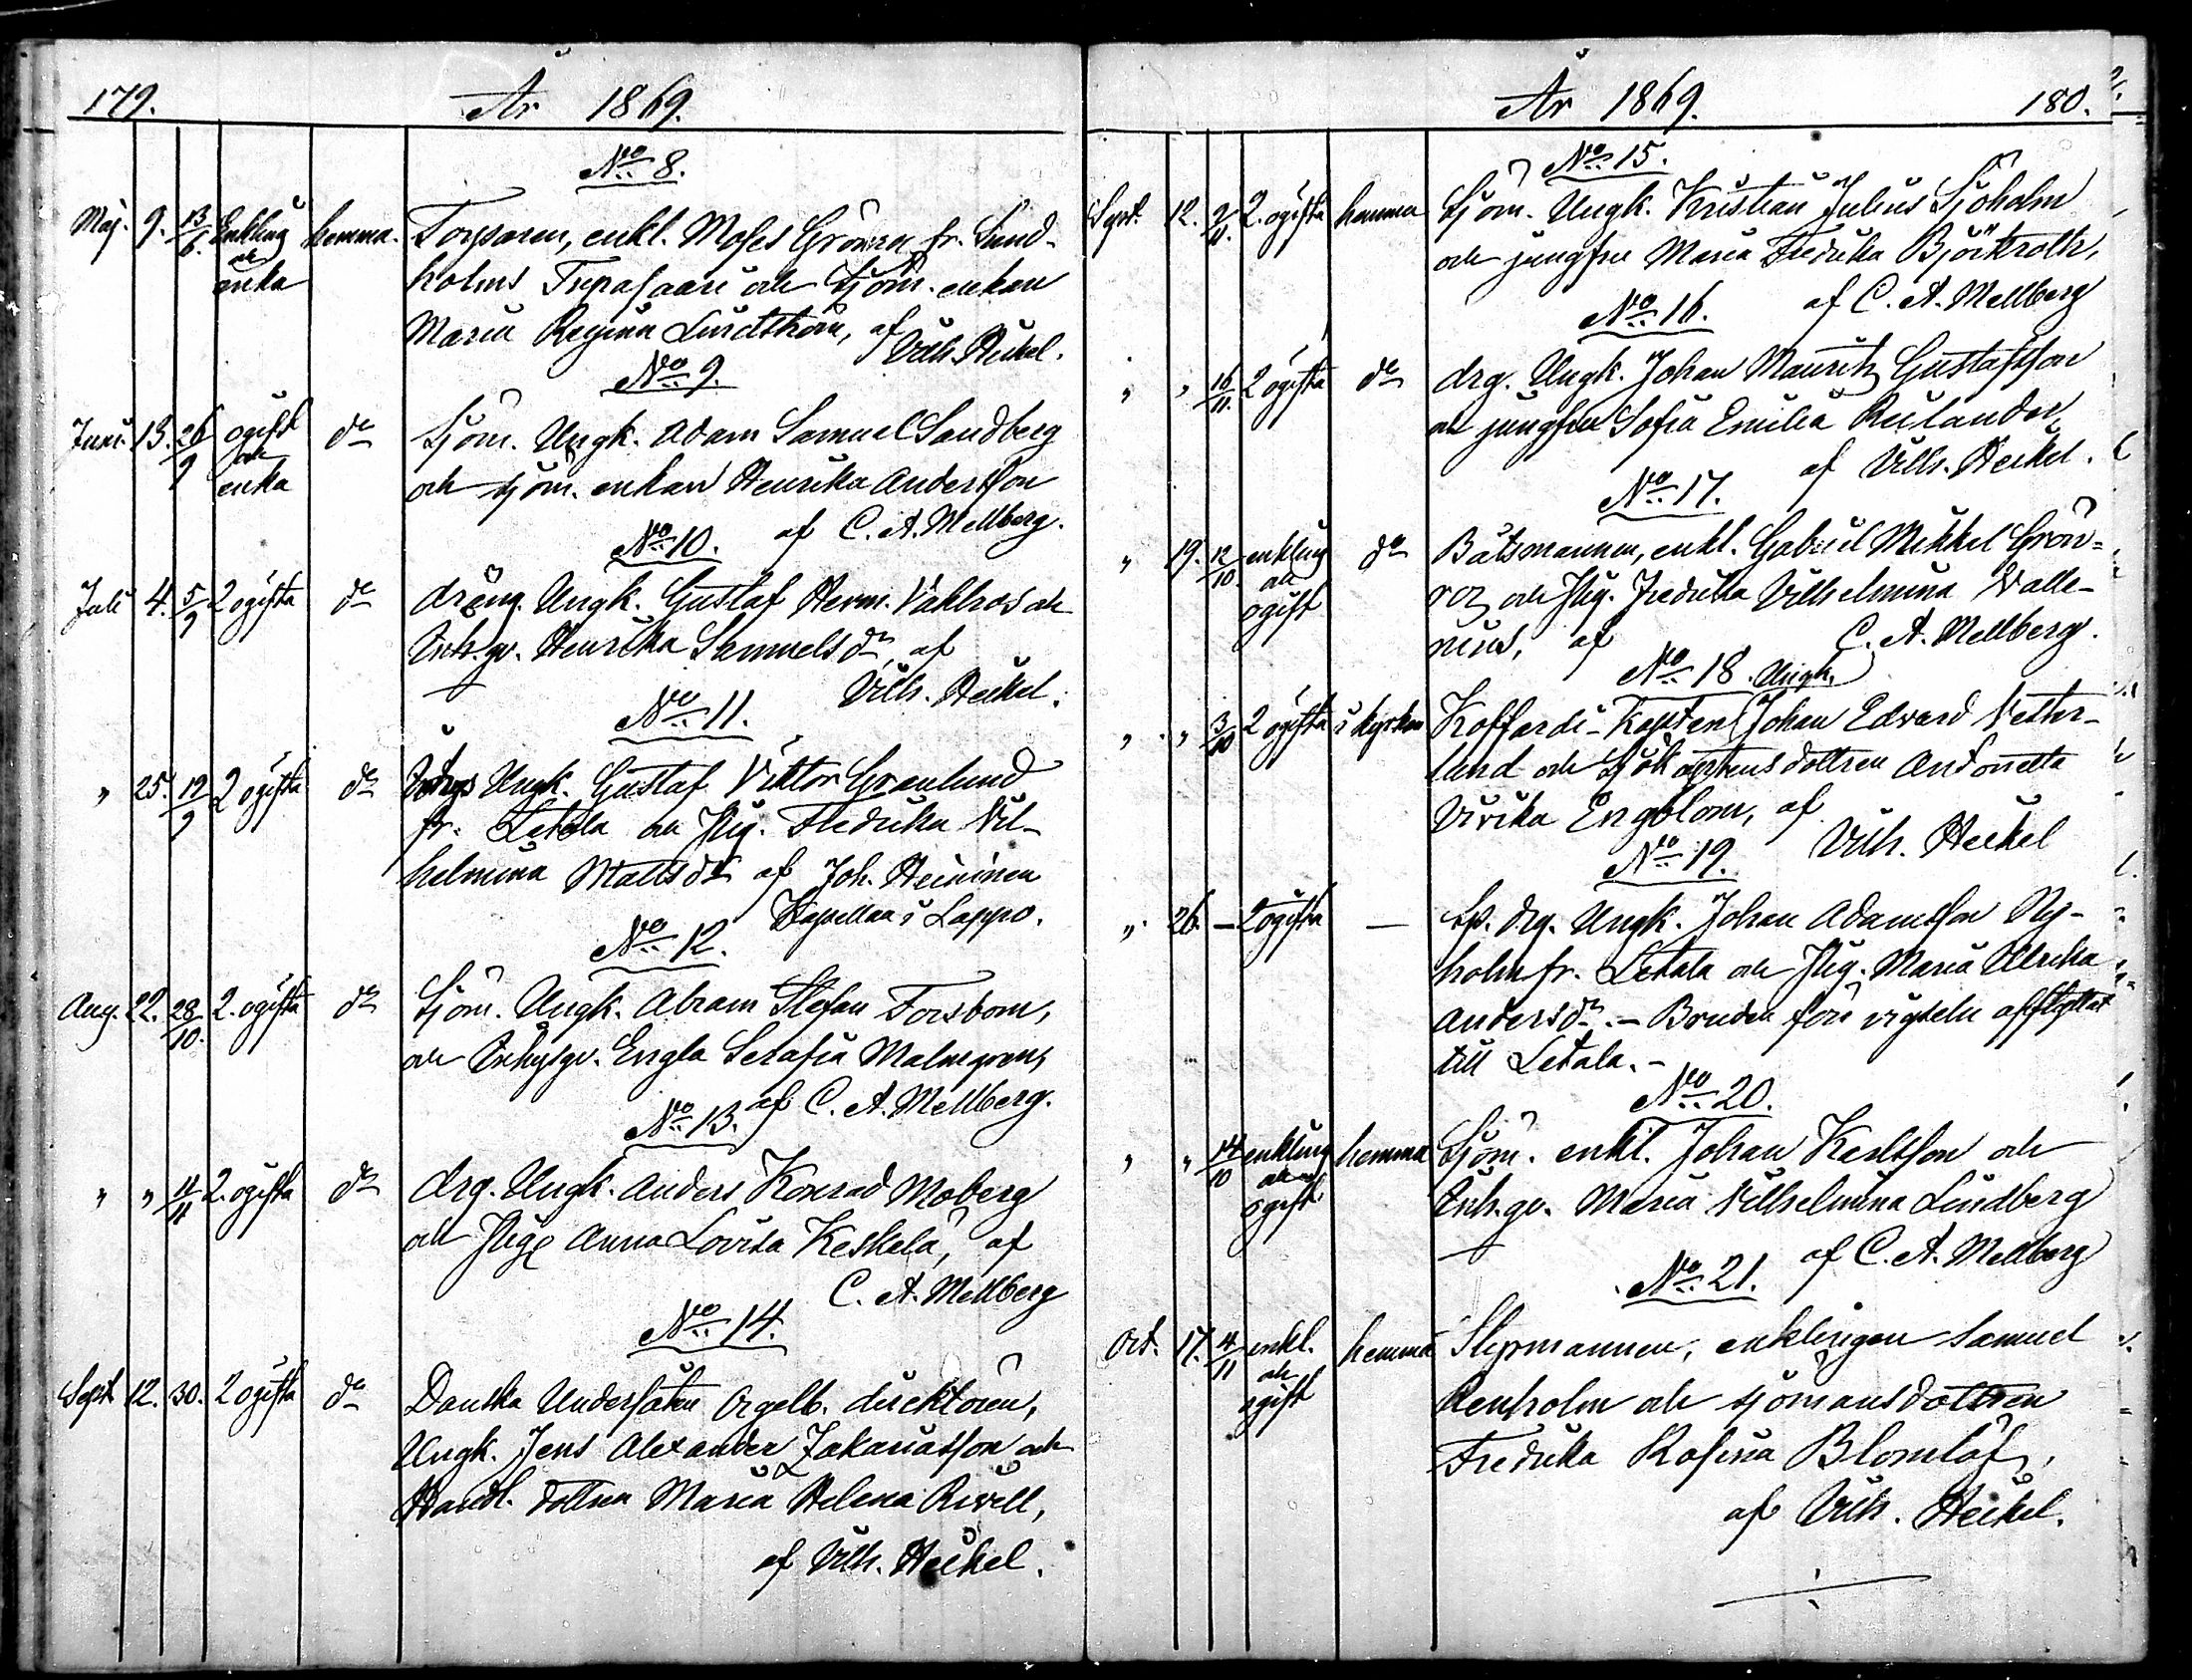 179. År 1869.
No 8.
Maj. 9. 13/6. Enkling och enka hemma. Torparen, enkl. Moses Grönroz fr. Sund-
holms Trepasaari och sjöm. enkan
Maria Regina Lindström, af
Vilh. Heikel.
No 9.
Juni. 13. 26/9 ogift och enka do Sjöm. Ungk. Adam Samuel Sandberg
och sjöm. enkan Henrika Andersson
af C. A. Mellberg.
No 10.
Juli 4. 5/9 2 ogifta do dräng. Ungk. Gustaf Herm. Vahlros och
Inh.gv. Henrika Samuels dr, af
Vilh. Heikel.
No 11.
" 25. 19/9 2 ogifta do Ungk. Gustaf Viktor Granlund
fr. Letala och Pig. Fredrika Vil-
helmina Matts dr af Joh. Heininen
Kapellan i Lappo.
No 12.
Aug. 22. 28/10. 2. ogifta do Sjöm. Ungk. Abram Stefan Forsbom,
och Inhysgv. Engla Serafia Malmgren,
af C. A. Mellberg.
No 13.
" " 11/11 2. ogifta do drg. Ungk. Anders Konrad Moberg
och Pig. Anna Lovisa Keskela, af
C. A. Mellberg
No 14.
Sept 12. 30. 2 ogifta do Danska Undersåten Orgelb. direktören,
Ungk. Jens Alexander Zakariasson och
Handl. dottren Maria Helena Rivell,
af Vilh. Heikel.
År 1869. 180.
No 15.
Sept. 12. 2/11. 2. ogifta hemma Sjöm. Ungk. Kristian Julius Sjöholm
och jungfru Maria Fredrika Björkroth,
af C. A. Mellberg
No 16.
" " 16/11. 2 ogifta do drg. Ungk. Johan Mauritz Gustafsson
och jungfru Sofia Emilia Reilander,
af Vilh. Heikel.
No 17.
" 19. 12/10. enkling och ogift do Båtsmannen, enkl. Gabriel Mikkel Grön-
roz och Pig. Fredrika Vilhelmina Valle-
nius, af C. A. Mellberg.
No 18. Ungk.
" " 3/10 2 ogifta i kyrkan Koffardi-Kapten Johan Edvard Vetter-
lund och Sjökaptens dottren Antonetta
Vivika Engblom, af
Vilh. Heikel
No 19.
" 26. - 2 ogifta - Sp. drg. Ungk. Johan Adamsson Ny-
holm fr. Letala och Pig. Maria Ulrika
Anders dr. - Bruden före vigseln afflyttat
till Letala. -
No 20.
" " 14/10 enkling och ogift hemma Sjöm. enkl. Johan Karlsson och
Inh.gv. Maria Vilhelmina Lindberg
af C. A. Mellberg
No 21.
Oct. 17. 4/11 enkl. och ogift hemma Styrmannen, enklingen Samuel
Renholm och sjömansdottren
Fredrika Rosina Blomlöf,
af Vilh. Heikel.